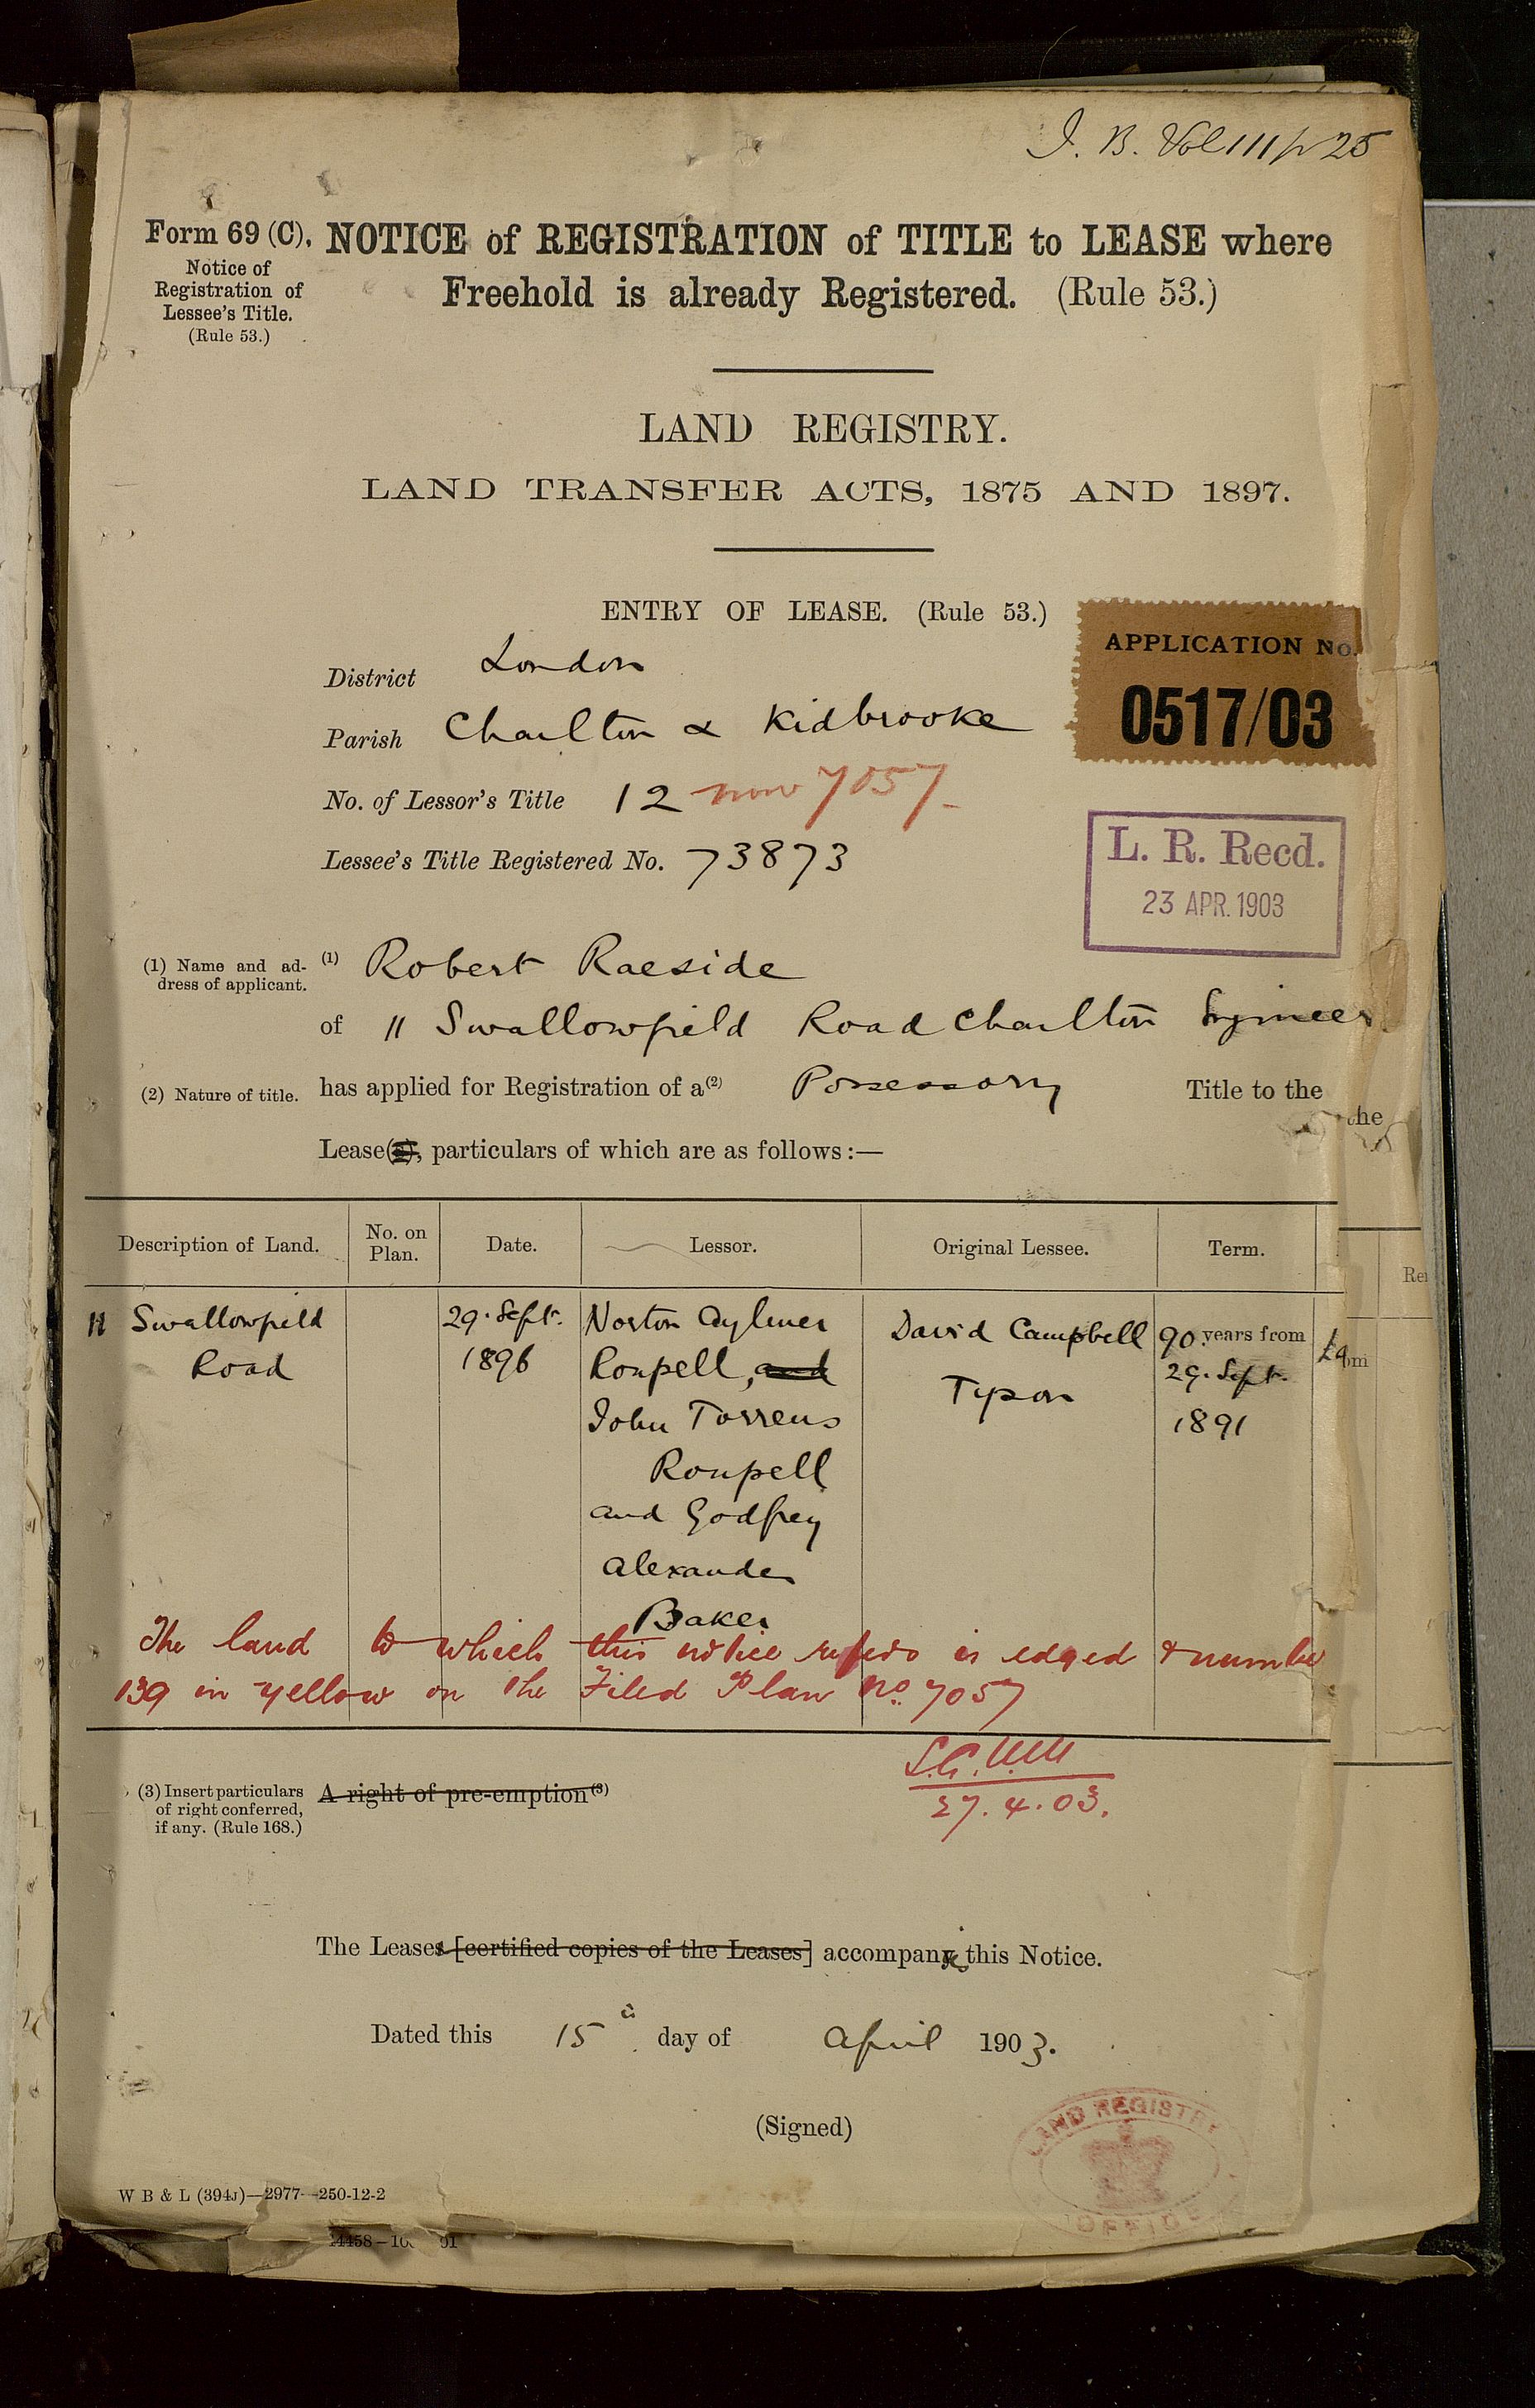 I. B. Vol 111 p 25
Form 69 (C).
Notice of
Registration of
Lessee's Title.
(Rule 53.)
NOTICE of REGISTRATION of TITLE to LEASE where
Freehold is already Registered. (Rule 53.)
LAND REGISTRY.
LAND TRANSFER ACTS, 1875 AND 1897.
ENTRY OF LEASE. (Rule 53.)
APPLICATION No.
0517/03
District London
Parish Charlton & Kidbrooke
No. of Lessor's Title 12 now 7057
Lessee's Title Registered No. 73873
L. R. Recd.
23 APR. 1903
(1) Name and ad-
dress of applicant.
(1) Robert Raeside
of 11 Swallowfield Road Charlton Engineer
(2) Nature of title.
has applied for Registration of a (2) Possessory Title to the
the
Lease(s), particulars of which are as follows:—
Description of Land. No. on Plan. Date. Lessor. Original Lessee. Term.
11 Swallowfield
Road
29. Sept.
1896
Norton Aylmer
Roupell, and
John Torrens
Roupell
and Godfrey
Alexander
Baker
David Campbell
Tyson
90 years from
29. Sept.
1891
The land to which this notice refers is edged & numbe
139 in yellow on the Filed Plan No. 7057
27.4.03.
(3) Insert particulars
of right conferred,
if any. (Rule 168.)
A right of pre-emption (3)
The Leases [certified copies of the Leases] accompany this Notice.
Dated this 15 day of April 1903.
(Signed)
LAND REGISTRY
OFFICE
W B & L (394J)—2977—250-12-2